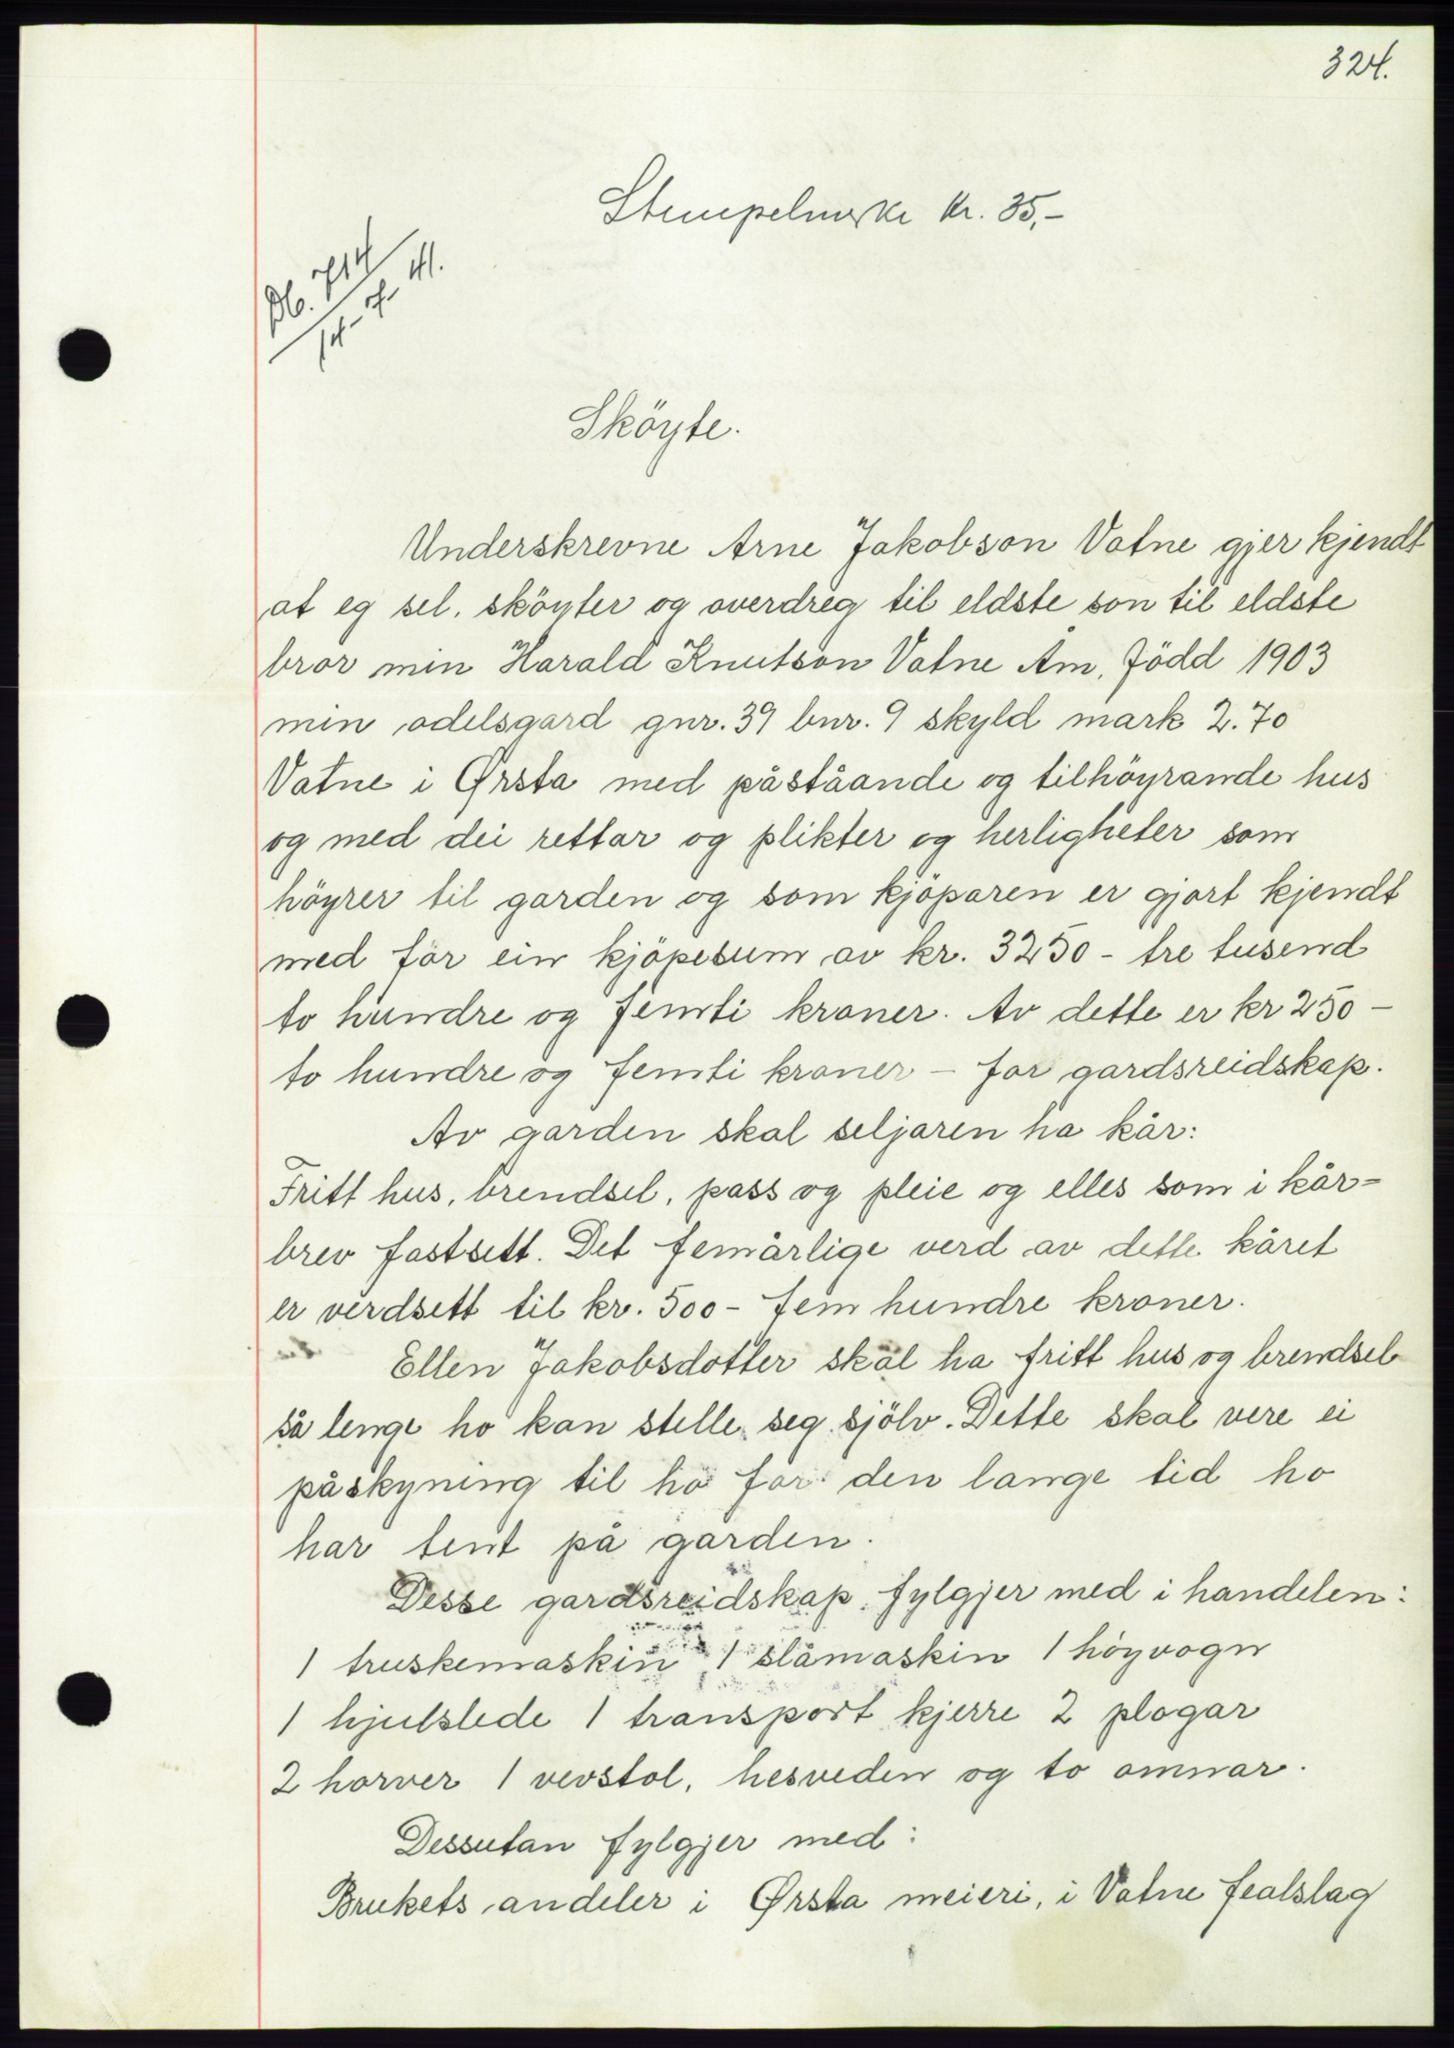 324.
Stempelmerke kr. 35,-
Db. 714
14-7-41.
Sköyte.
Underskrevne Arne Jakobson Vatne gjer kjendt
at eg sel, sköyter og overdreg til eldste son til eldste
bror min Harald Knutson Vatne Åm, född 1903
min odelsgard gnr. 39 bnr. 9 skyld mark 2.70
Vatne i Ørsta med påståande og tilhöyrande hus
og med dei rettar og plikter og herligheter som
höyrer til garden og som kjöparen er gjort kjendt
med for ein kjöpesum av kr. 3250 - tre tusend
to hundre og femti kroner. Av dette er kr 250 -
to hundre og femti kroner - for gardsreidskap.
Av garden skal seljaren ha kår:
Fritt hus, brendsel, pass og pleie og elles som i kår=
brev fastsett. Det femårlige verd av dette kåret
er verdsett til kr. 500 - fem hundre kroner.
Ellen Jakobsdotter skal ha fritt hus og brendsel
så lenge ho kan stelle seg sjölv. Dette skal vere ei
påskyning til ho for den lange tid ho
har tent på garden.
Desse gardsreidskap fylgjer med i handelen:
1 truskemaskin 1 slåmaskin 1 höyvogn
1 hjulslede 1 transport kjerre 2 plogar
2 horver 1 vevstol, hesveden og to omnar.
Dessutan fylgjer med:
Brukets andeler i Ørsta meieri, i Vatne fealslag